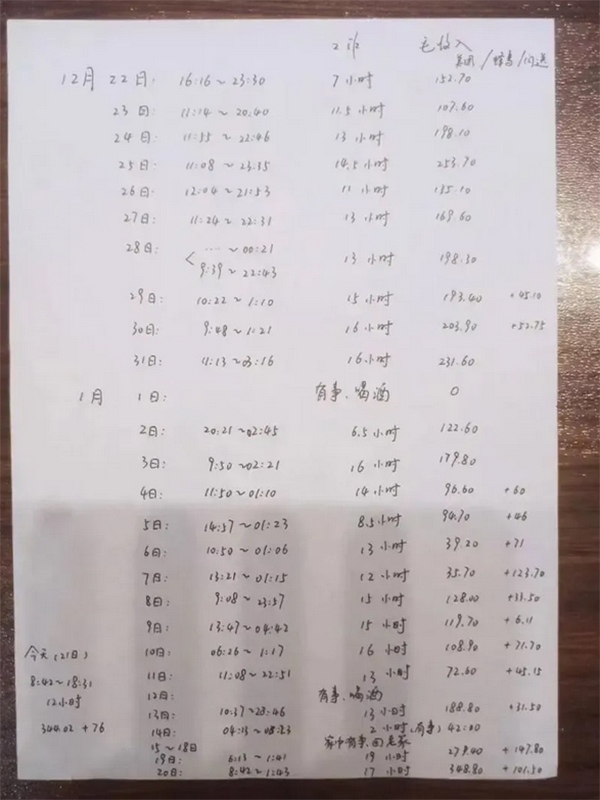 工作 毛收入
美团/蜂鸟/闪送
12月 22日: 16:16~23:30 7小时 152.70
23日: 11:14~20:40 11.5小时 107.60
24日: 11:55~22:46 13小时 198.10
25日: 11:08~23:35 14.5小时 253.70
26日: 12:04~21:53 11小时 135.10
27日: 11:24~22:31 13小时 169.60
28日: < ……~00:21
9:39~22:43 13小时 198.30
29日: 10:22~1:10 15小时 193.40 +45.10
30日: 9:48~1:21 16小时 203.90 +52.75
31日: 11:13~03:16 16小时 231.60
1月 1日: 有事、喝酒 0
2日: 20:21~02:45 6.5小时 122.60
3日: 9:50~02:21 16小时 179.80
4日: 11:50~01:10 14小时 96.60 +60
5日: 14:57~01:23 8.5小时 94.70 +46
6日: 10:50~01:06 13小时 39.20 +71
7日: 13:21~01:15 12小时 35.70 +123.70
8日: 9:08~23:57 15小时 128.00 +33.50
9日: 13:47~04:42 15小时 119.70 +6.11
10日: 06:26~1:17 16小时 108.90 +71.70
11日: 11:08~22:51 13小时 72.60 +45.15
12日: 有事、喝酒
13日: 10:37~23:46 13小时 188.80 +31.50
14日: 04:13~08:23 2小时(有事) 42.00
15~18日 家中有事、回老家
19日: 6:13~1:41 19小时 279.40 +147.80
20日: 8:42~1:43 17小时 348.80 +101.50
今天(21日)
8:42~18:31
12小时
344.02+76